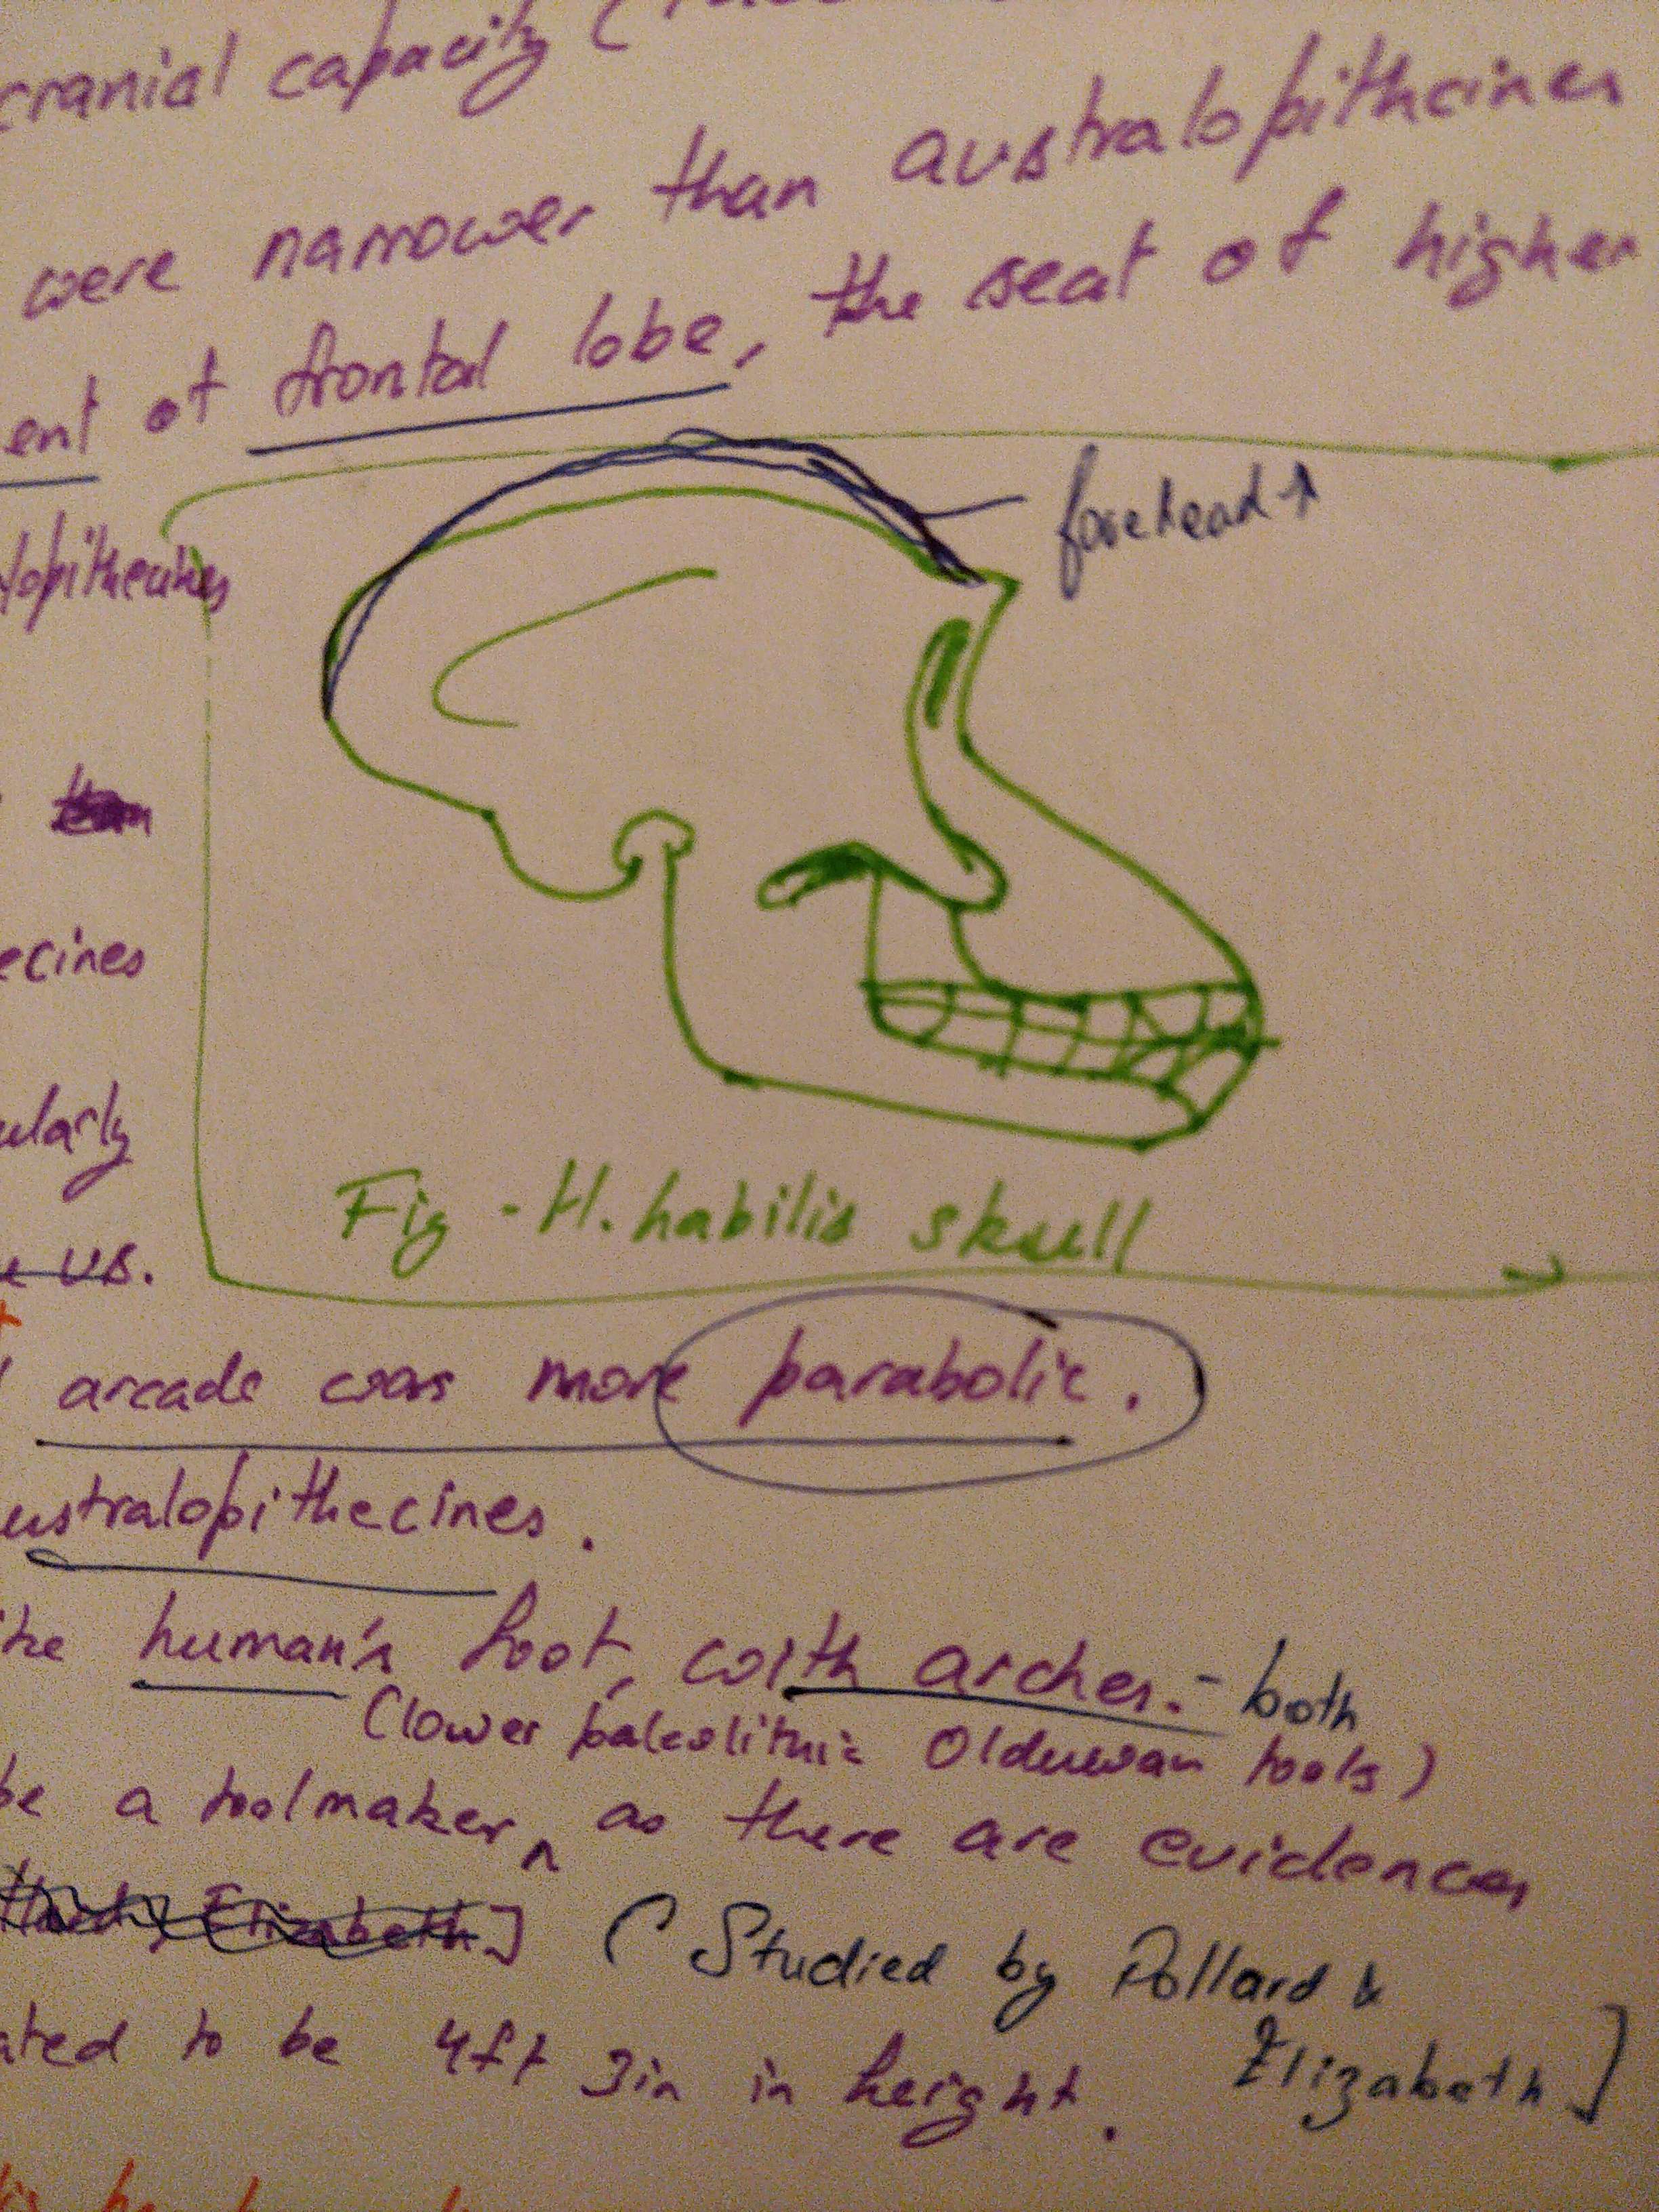 cranial capacity (
were narrower than australopithecines
ent of frontal lobe, the seat of higher
forehead ↑
lopithecines
ecines
ularly
us.
Fig - H. habilis skull
arcade was more parabolic.
ustralopithecines.
ike human's foot, with arches. - both
(lower paleolithic Olduwan tools)
be a toolmaker ^ as there are evidences
Elizabeth] ( Studied by Pollard &
Elizabeth]
ated to be 4ft 3in in height.